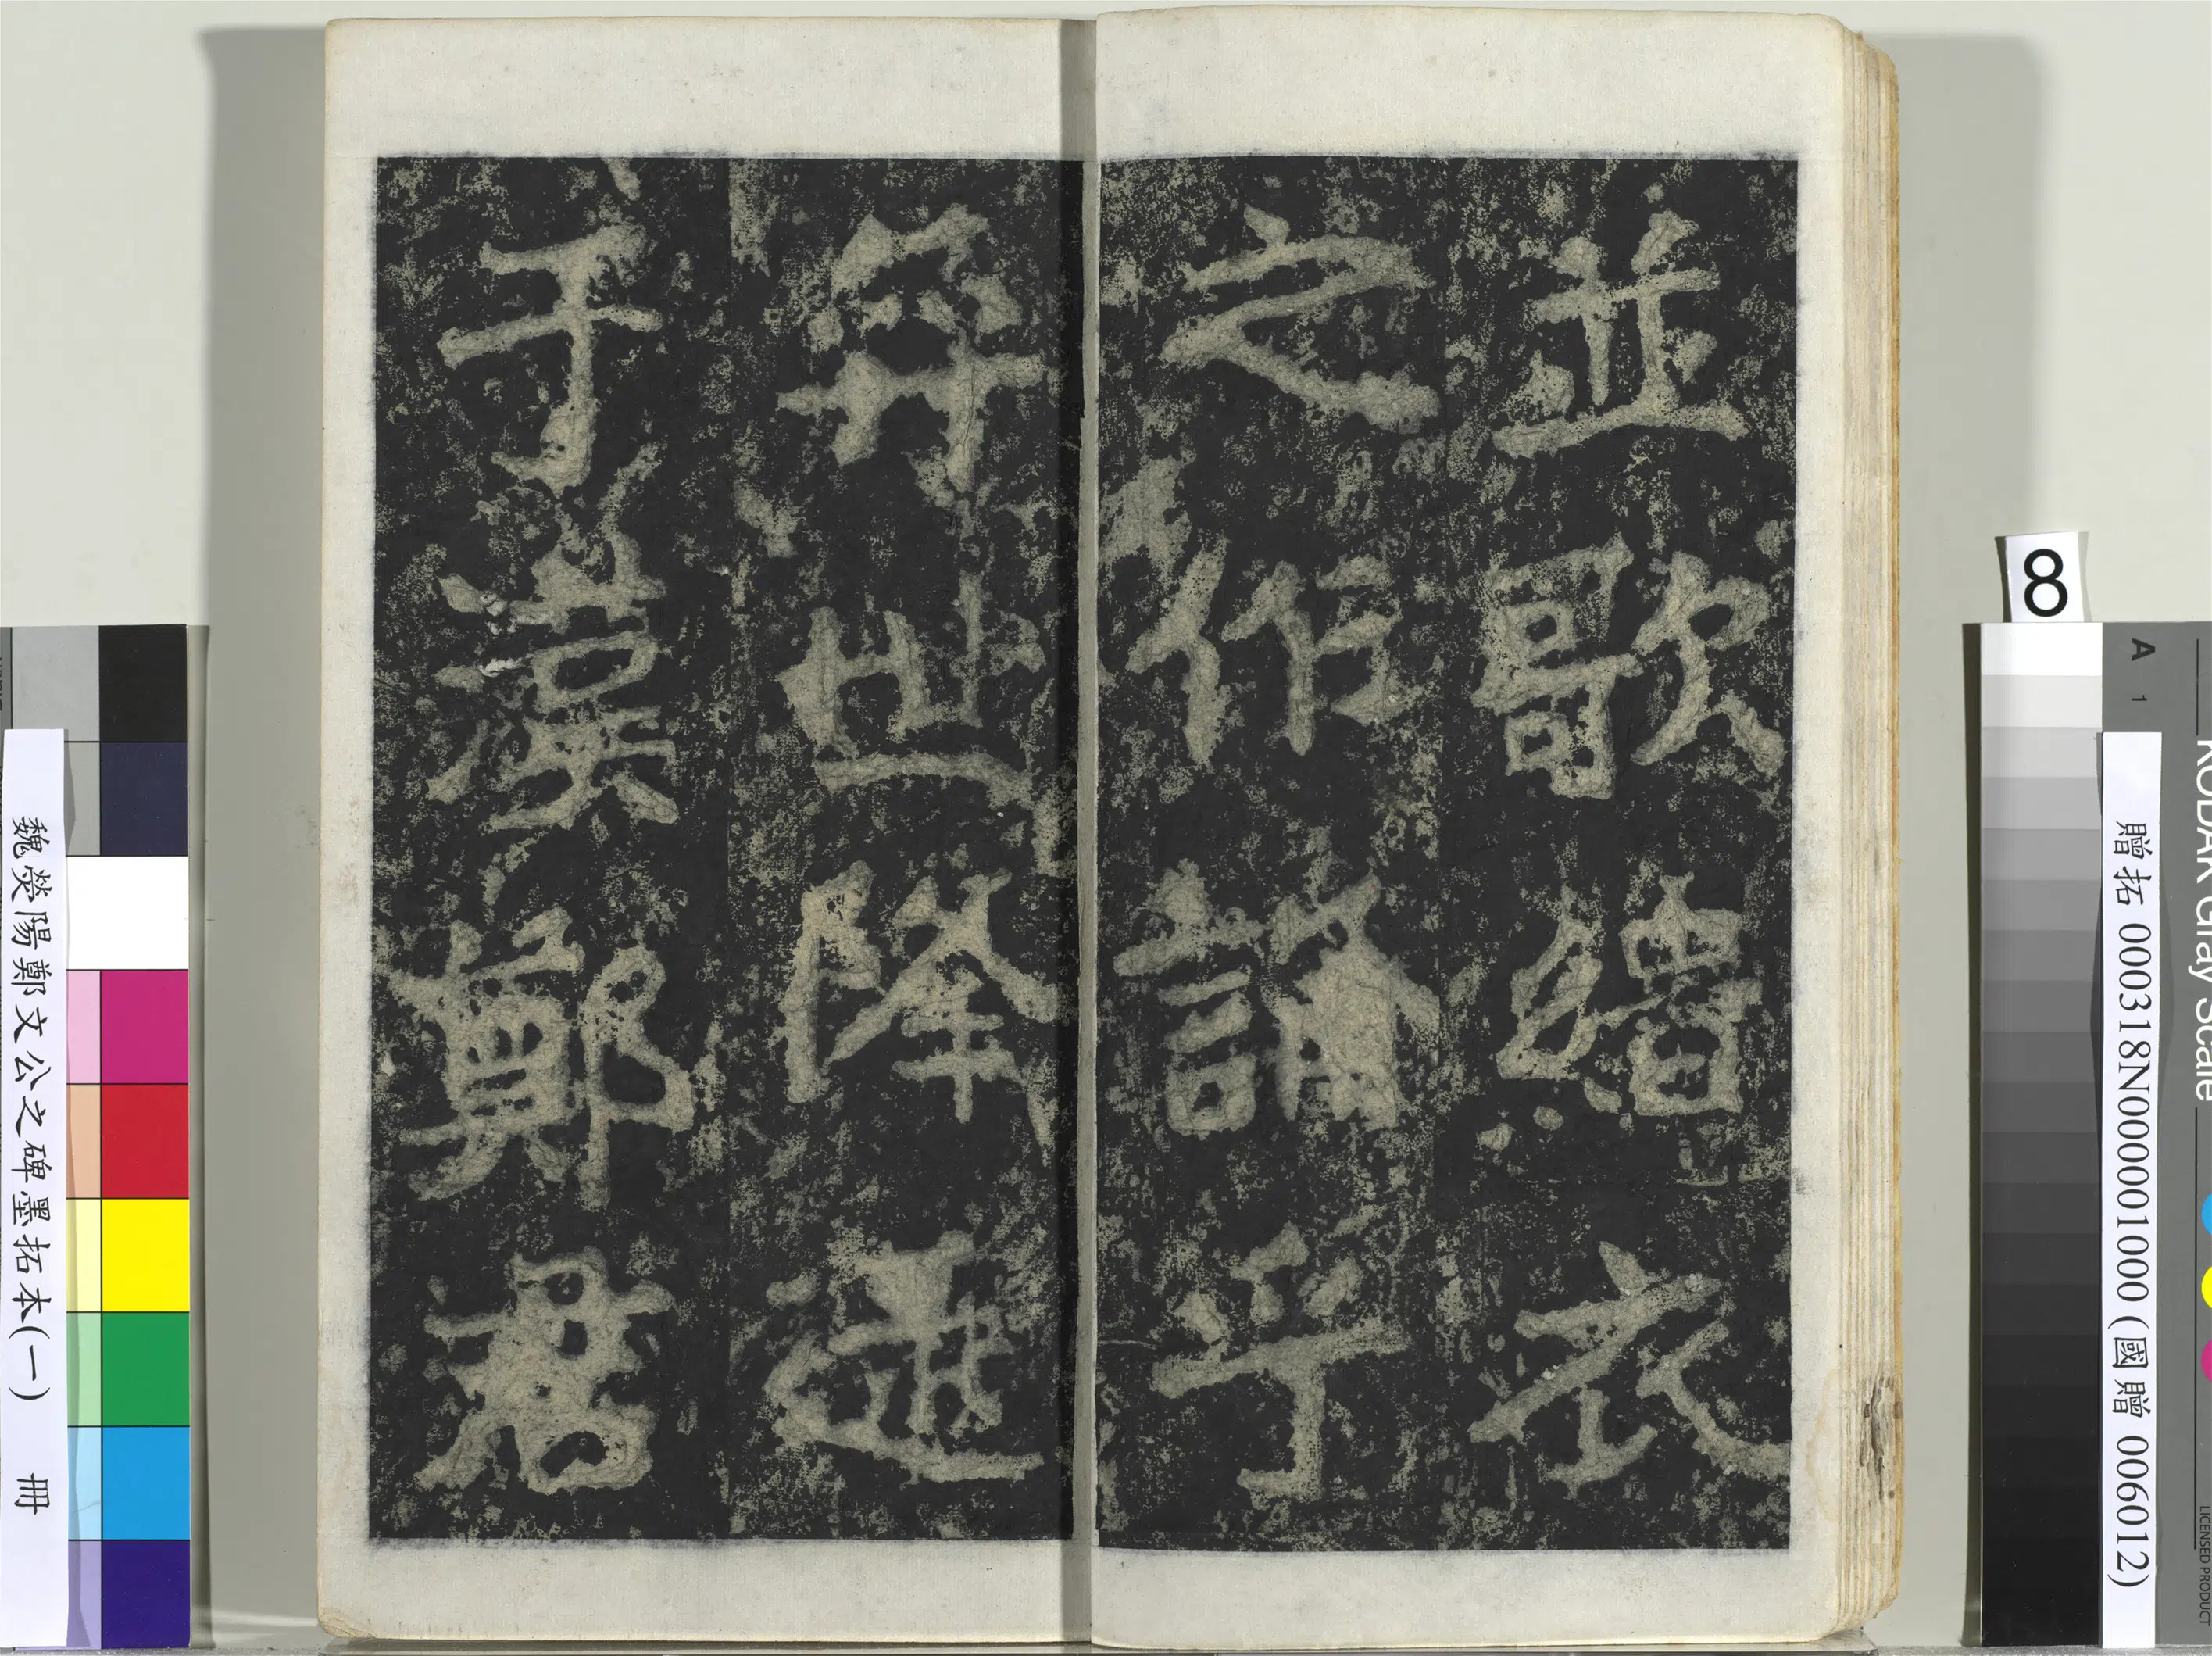 並歌緇衣
之作誦乎
奕世降逮
于漢鄭君
魏滎陽鄭文公之碑墨拓本(一) 冊
8
A 1
KODAK Gray Scale
LICENSED PRODUCT
贈拓 000318N000001000 (國贈 006012)